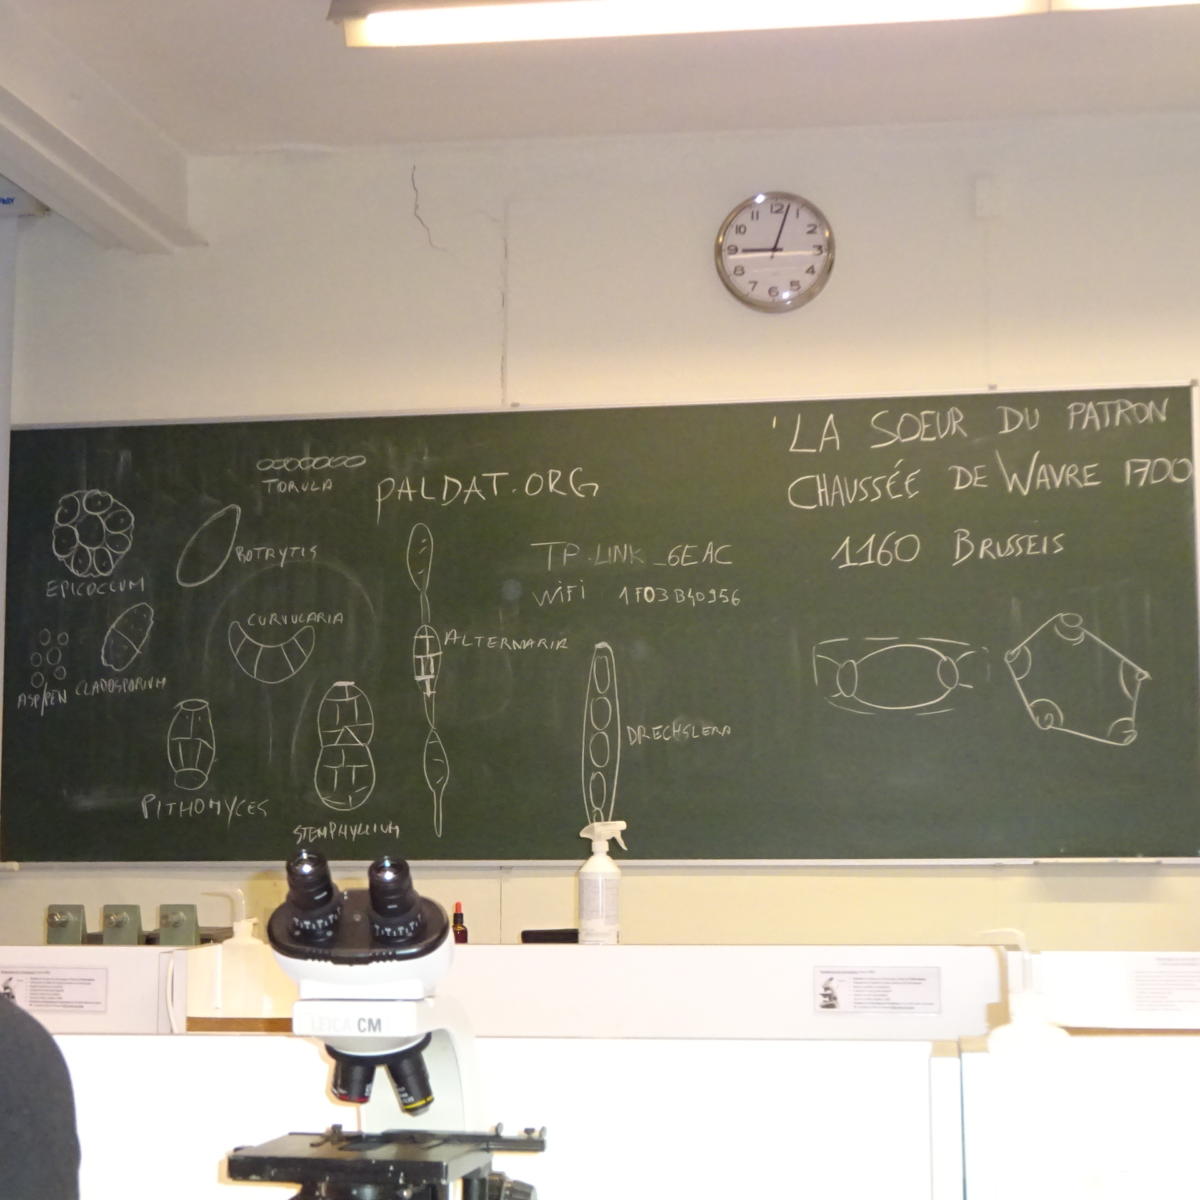 12
11
1
10
2
9
3
8
4
7
5
6
'LA SOEUR DU PATRON
CHAUSSÉE DE WAVRE 1700
1160 BRUSSEIS
TORULA
PALDAT.ORG
BOTRYTIS
EPICOCCUM
TP-LINK_6EAC
WIFI 1F03B40956
CURVULARIA
ALTERNARIA
ASP/PEN CLADOSPORIUM
DRECHSLERA
PITHOMYCES
STEMPHYLIUM
LEICA CM